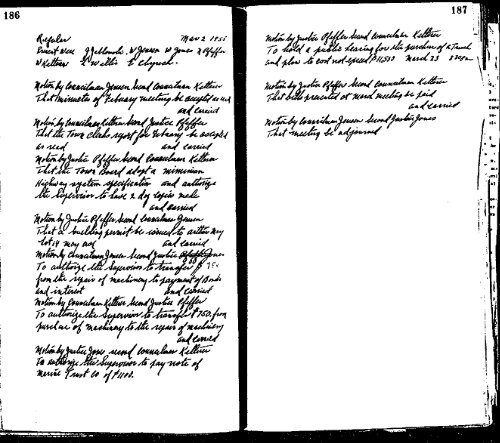 186
Regular Mar 2 1955
Present Were J Jablonski W Jensen W Jones R Pfeffer
W Keltner
Motion by Councilman Jensen second councilman Keltner
That minutes of Febuary meeting be accepted as read
and carried
Motion by Councilman Keltner Second Justice Pfeffer
That the Town Clerks report for Febuary be accepted
as read and carried
Motion by Justice Pfeffer Second Councilman Keltner
That the Town Board adopt a minimum
Highway system specification and authorize
the Supervisor to have 2 dog copies made
and carried
Motion by Justice Pfeffer Second councilman Jensen
That a building permit be issued to
lot 14 and carried
Motion by Councilman Jensen Second Justice Jones
To authorize the Supervisor to transfer $
from the repair of machinery to payment of Bonds
and interest and carried
Motion by Councilman Keltner Second Justice Pfeffer
To authorize the Supervisor to transfer $750. from
purchase of machinery to the repair of machinery
and carried
Motion by Justice Jones second councilman Keltner
To authorize the Supervisor to pay note of
Marine Trust Co of $1100.
187
Motion by Justice Pfeffer Second councilman Keltner
To hold a public hearing for the purchase of a Truck
and plow to cost not exceed $11,500 March 23
Motion by Justice Pfeffer Second councilman Keltner
That bills presented at March meeting be paid
and carried
Motion by Councilman Jensen Second Justice Jones
That meeting be adjourned